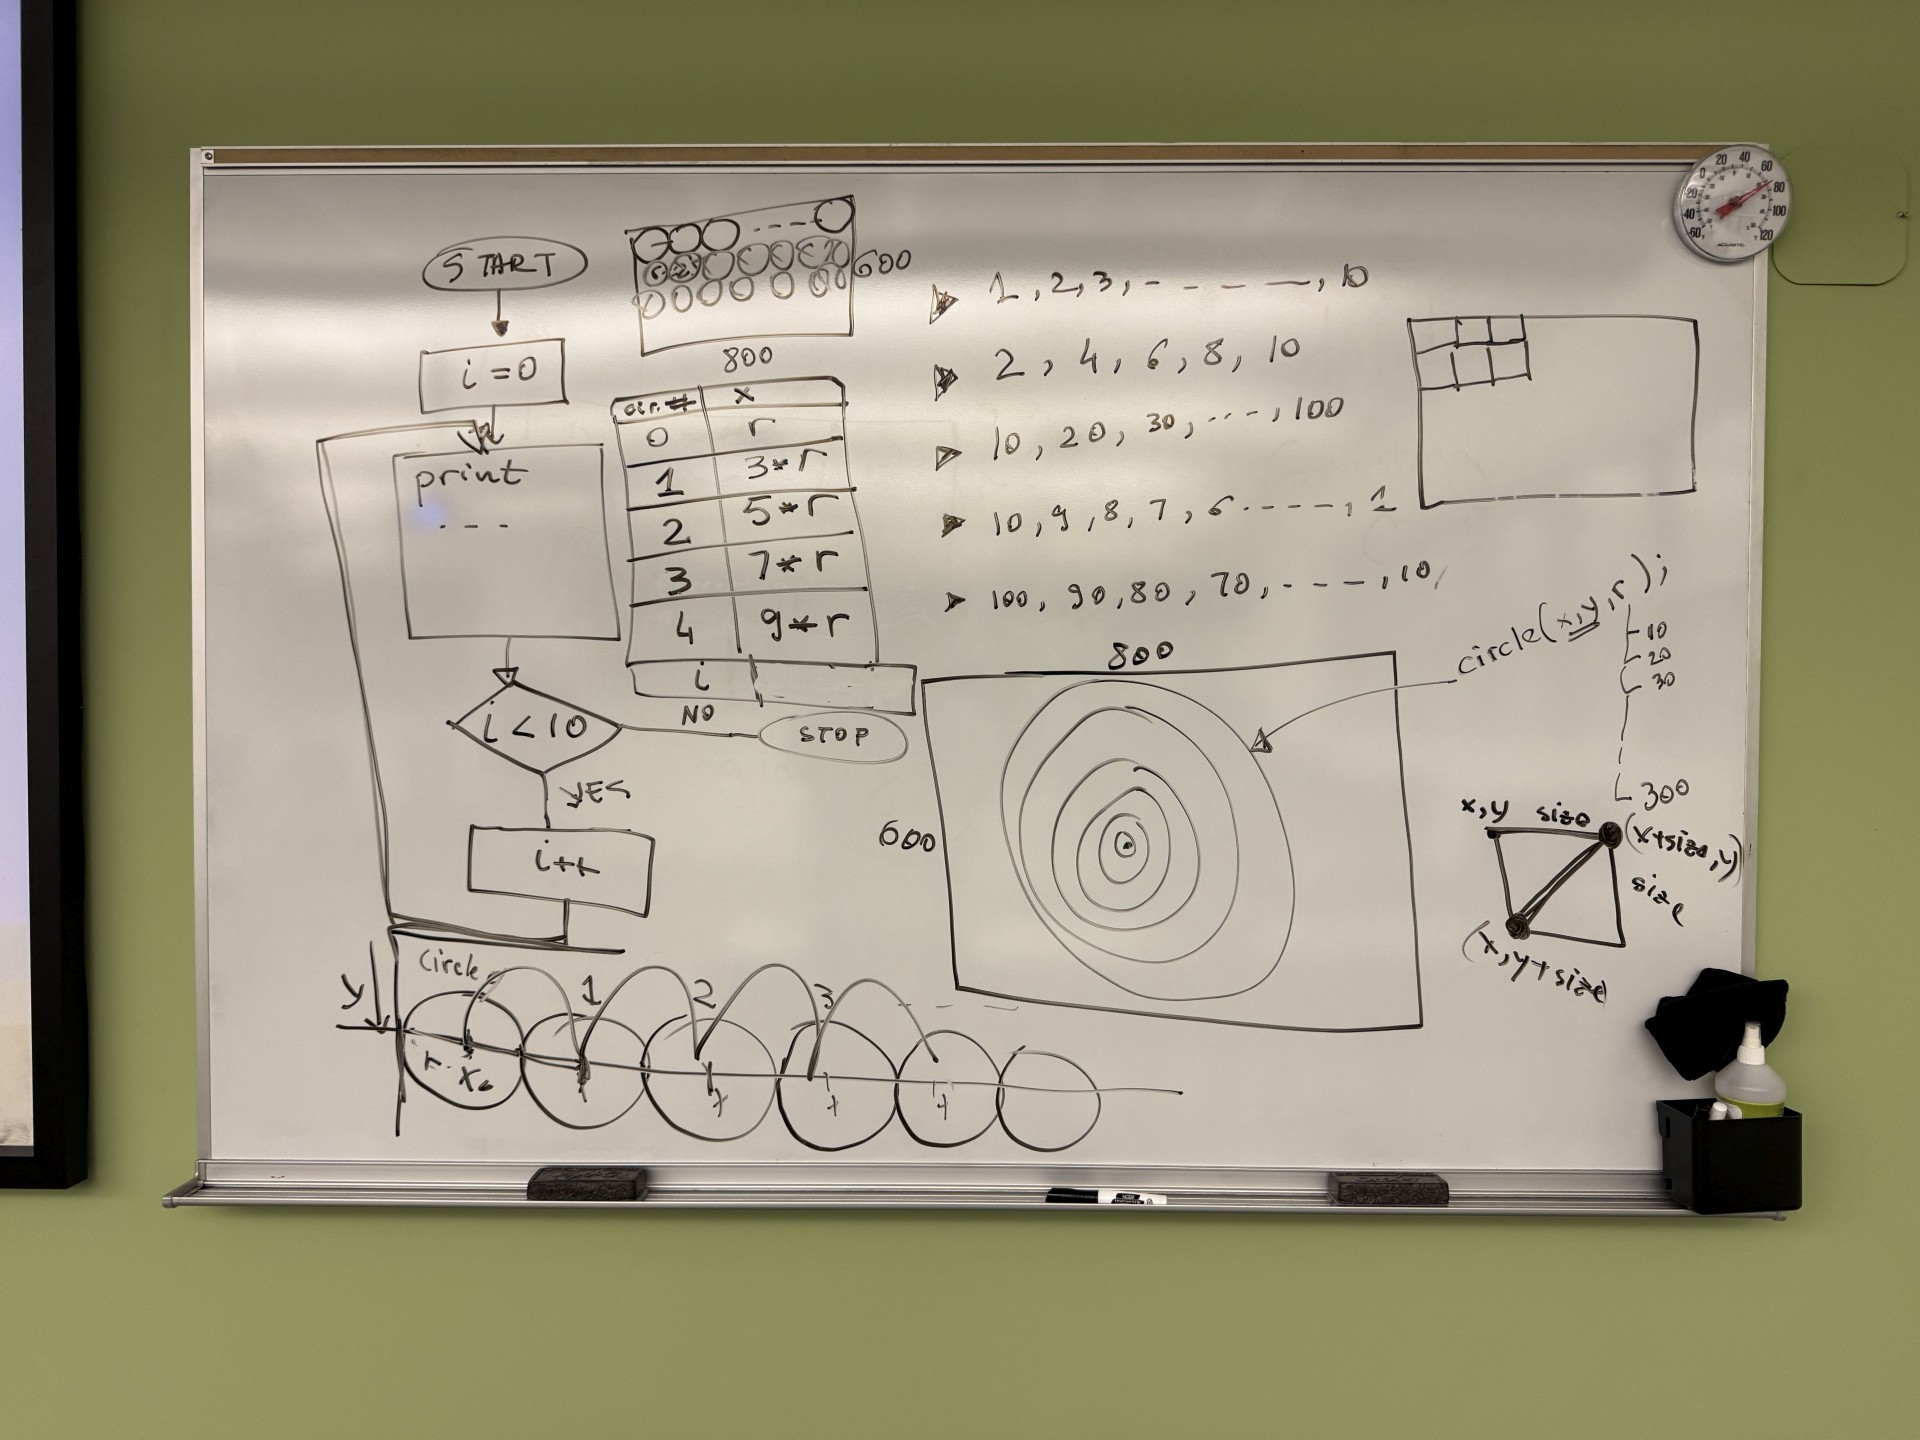 START
i = 0
print
- - -
i < 10
NO
STOP
YES
i++
600
800
cir.# x
0 r
1 3*r
2 5*r
3 7*r
4 9*r
i
1, 2, 3, - - - —, 10
2, 4, 6, 8, 10
10, 20, 30, ..-, 100
10, 9, 8, 7, 6 - - - -, 1
100, 90, 80, 70, - - —, 10
circle(x,y,r);
10
20
30
300
800
600
x,y size (x+size,y)
size
(x,y+size
y
circle
1 2 3
r
20 40 60 80 100 120
0
-20
-40
-60
ACURITE